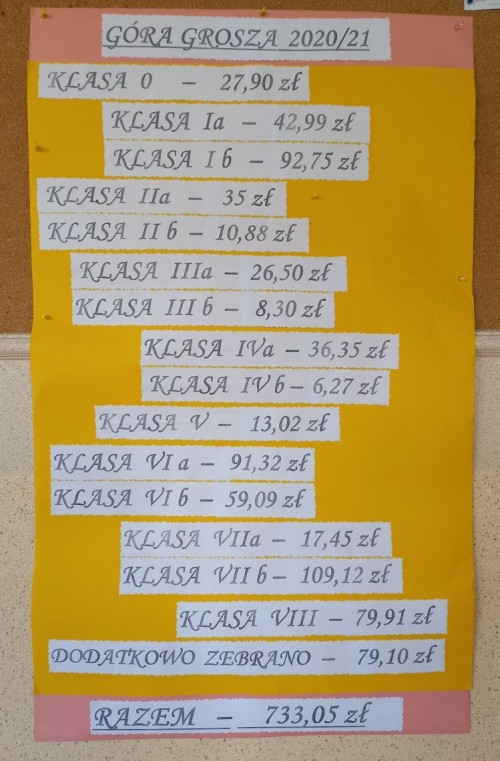 GÓRA GROSZA 2020/21
KLASA 0 – 27,90 zł
KLASA Ia – 42,99 zł
KLASA I b – 92,75 zł
KLASA IIa – 35 zł
KLASA II b – 10,88 zł
KLASA IIIa – 26,50 zł
KLASA III b – 8,30 zł
KLASA IVa – 36,35 zł
KLASA IV b – 6,27 zł
KLASA V – 13,02 zł
KLASA VI a – 91,32 zł
KLASA VI b – 59,09 zł
KLASA VIIa – 17,45 zł
KLASA VII b – 109,12 zł
KLASA VIII – 79,91 zł
DODATKOWO ZEBRANO – 79,10 zł
RAZEM – 733,05 zł